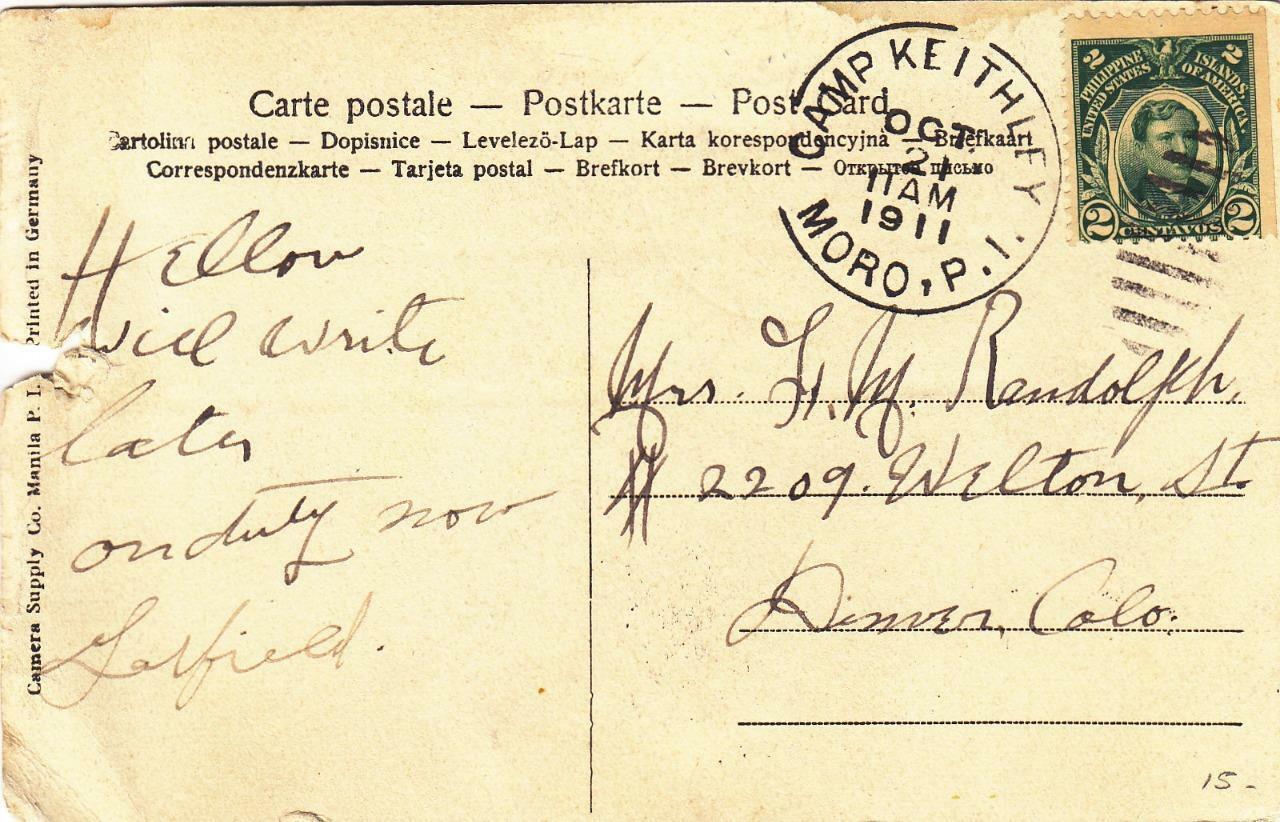 Carte postale — Postkarte — Post Card
Cartolina postale — Dopisnice — Levelezö-Lap — Karta korespondencyjna — Briefkaart
Correspondenzkarte — Tarjeta postal — Brefkort — Brevkort — Открытое письмо
CAMP KEITHLEY
OCT.
21
11AM
1911
MORO, P. I.
2 2
PHILIPPINE ISLANDS
UNITED STATES OF AMERICA
2 CENTAVOS 2
Camera Supply Co. Manila P. I. Printed in Germany
Hellow
will write
later
on duty now
Garfield.
Mrs. F. M. Randolph,
# 2209. Welton, St.
Denver, Colo.
15-